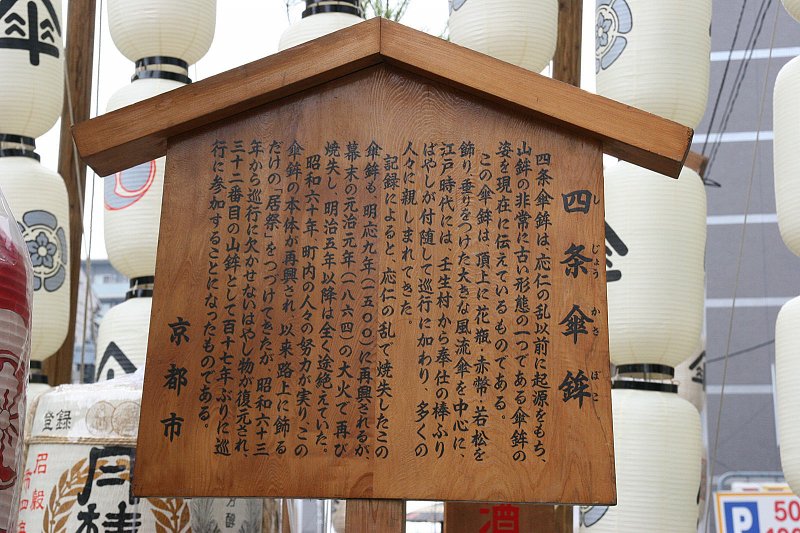 四条傘鉾
しじょうかさぼこ
四条傘鉾は、応仁の乱以前に起源をもち、
山鉾の非常に古い形態の一つである傘鉾の
姿を現在に伝えているものである。
この傘鉾は、頂上に花瓶、赤幣、若松を
飾り、垂りをつけた大きな風流傘を中心に、
江戸時代には、壬生村から奉仕の棒ふり
ばやしが付随して巡行に加わり、多くの
人々に親しまれてきた。
記録によると、応仁の乱で焼失したこの
傘鉾も、明応九年(一五〇〇)に再興されるが、
幕末の元治元年(一八六四)の大火で再び
焼失し、明治五年以降は全く途絶えていた。
昭和六十年、町内の人々の努力が実り、この
傘鉾の本体が再興され、以来路上に飾る
だけの「居祭」をつづけてきたが、昭和六十三
年から巡行に欠かせないはやし物が復元され、
三十二番目の山鉾として百十七年ぶりに巡
行に参加することになったものである。
京都市
傘
登録
月桂
酒
P
50